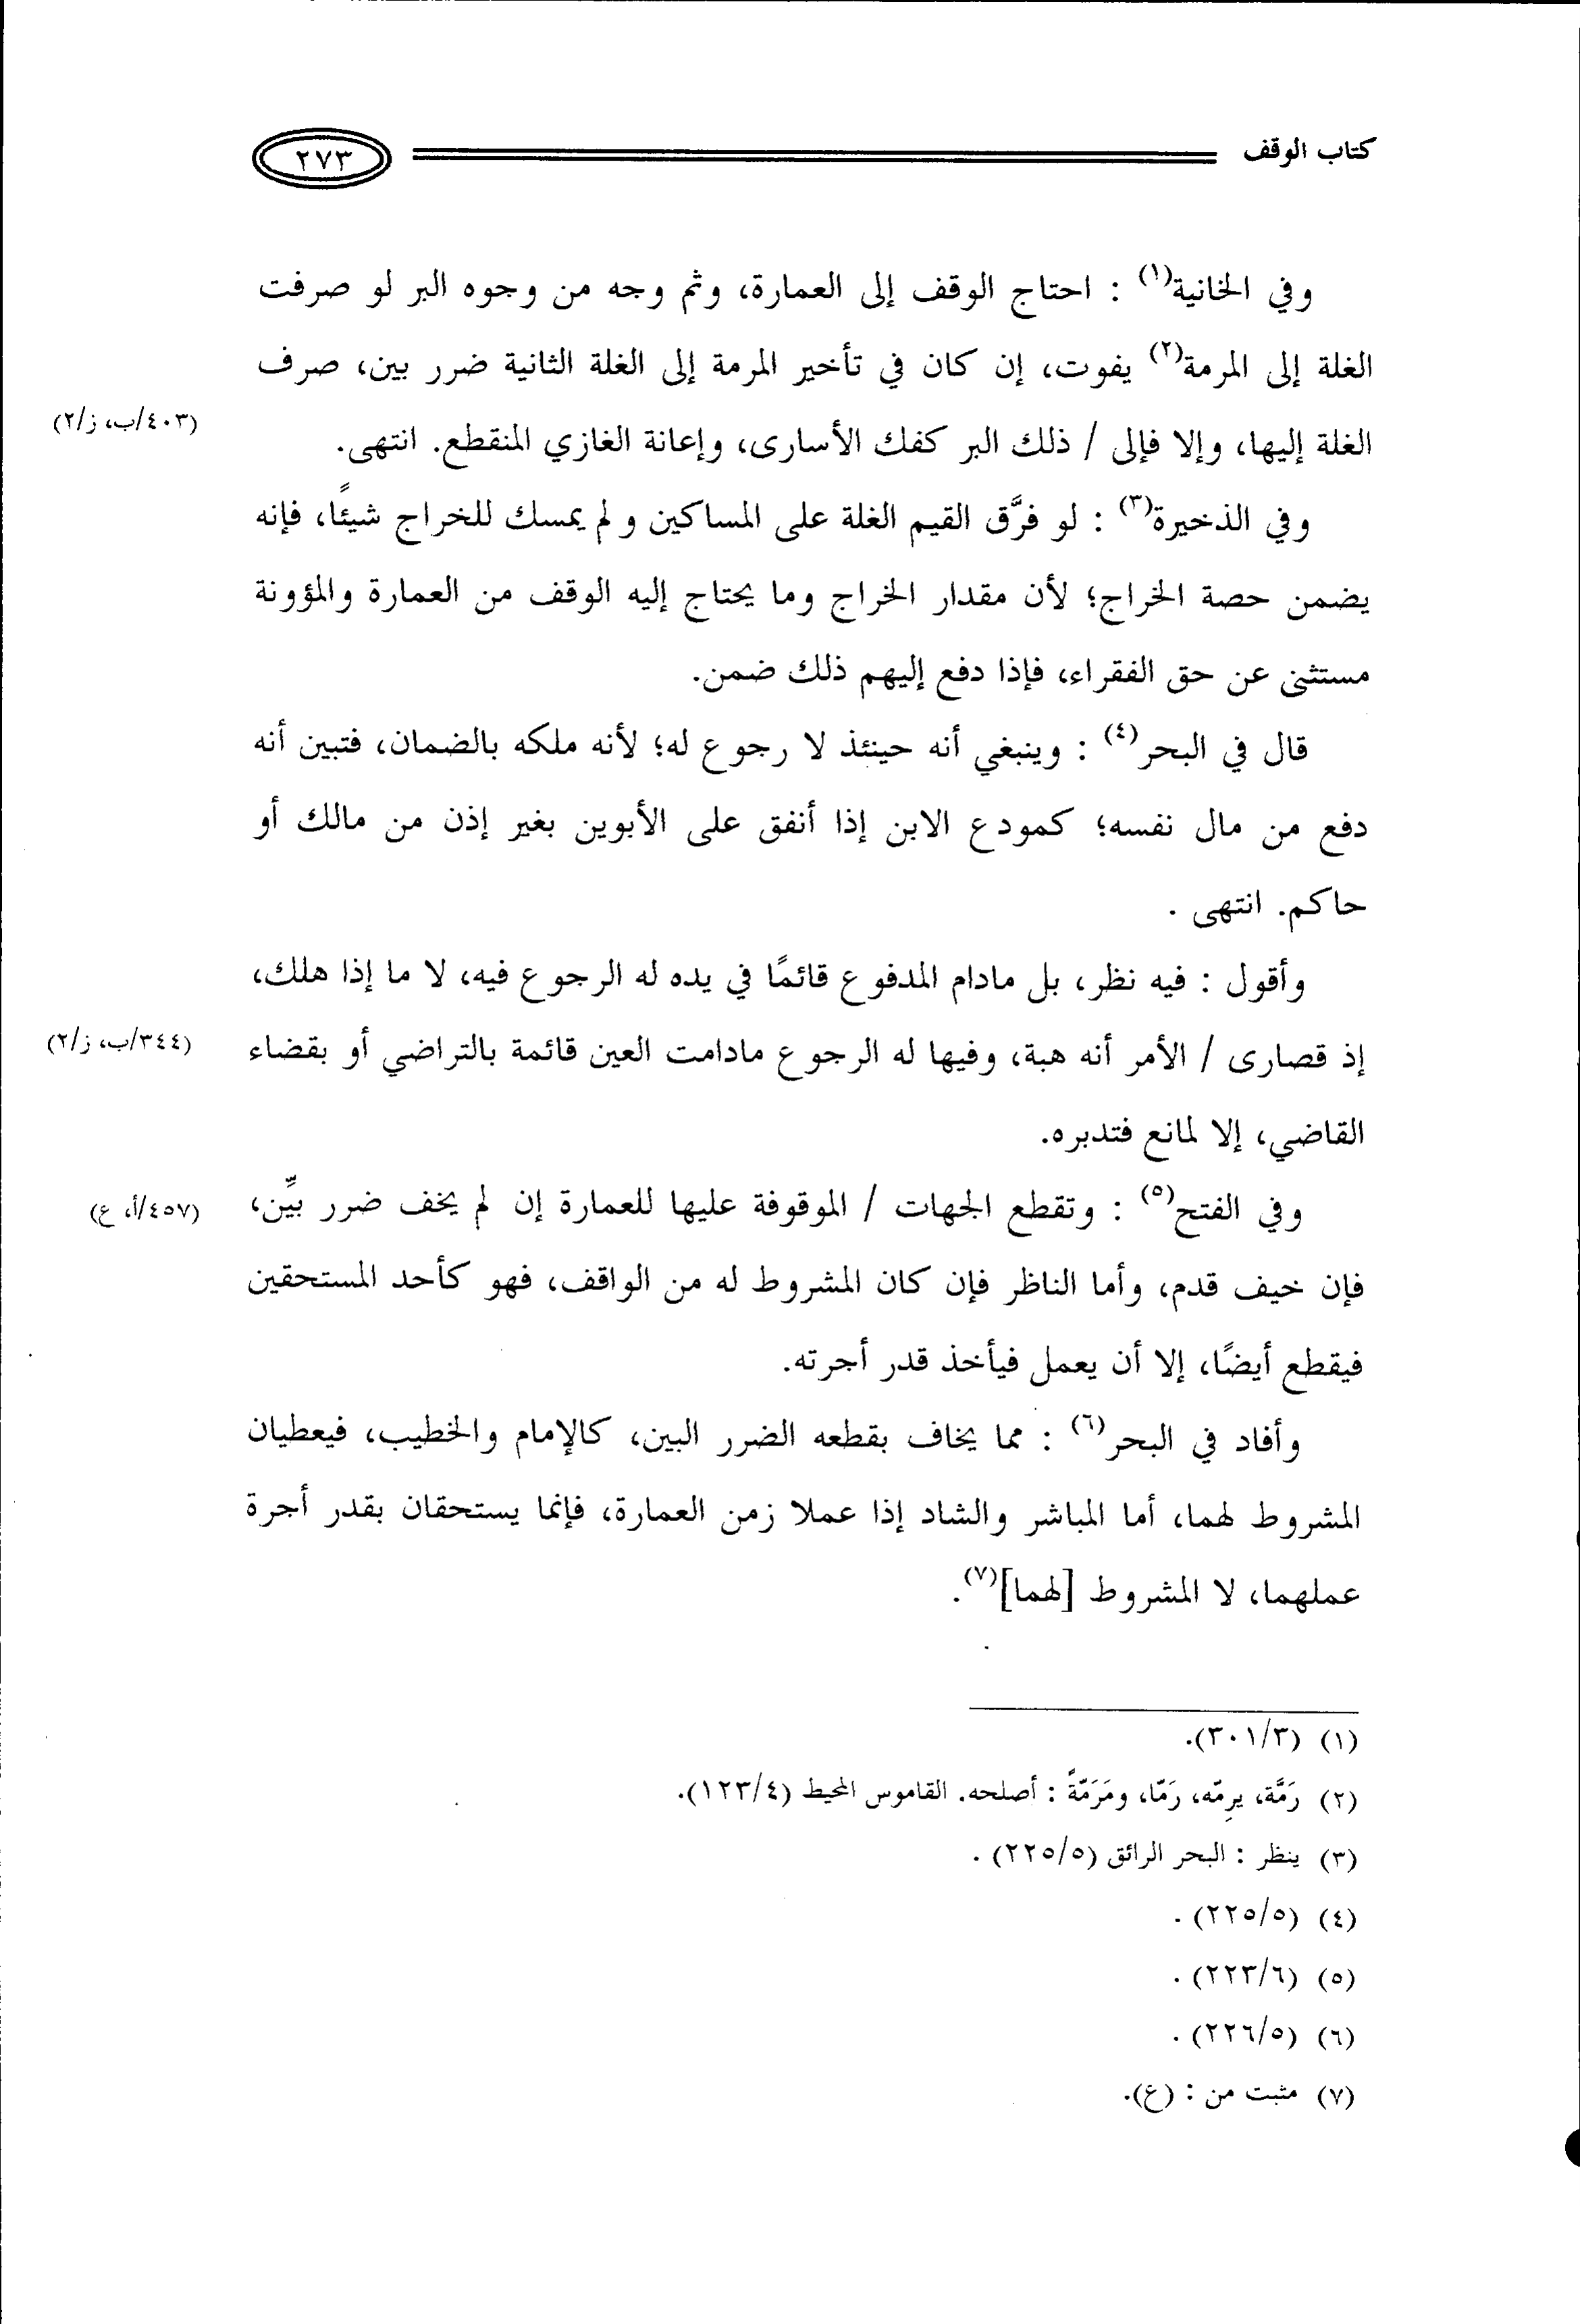 كتاب الوقف ٢٧٣
وفي الخانية(١) : احتاج الوقف إلى العمارة، وثم وجه من وجوه البر لو صرفت
الغلة إلى المرمة(٢) يفوت، إن كان في تأخير المرمة إلى الغلة الثانية ضرر بين، صرف
(٤٠٣/ب، ز/٢)
الغلة إليها، وإلا فإلى / ذلك البر كفك الأسارى، وإعانة الغازي المنقطع. انتهى.
وفي الذخيرة(٣) : لو فرَّق القيم الغلة على المساكين ولم يمسك للخراج شيئًا، فإنه
يضمن حصة الخراج؛ لأن مقدار الخراج وما يحتاج إليه الوقف من العمارة والمؤونة
مستثنى عن حق الفقراء، فإذا دفع إليهم ذلك ضمن.
قال في البحر(٤) : وينبغي أنه حينئذ لا رجوع له؛ لأنه ملكه بالضمان، فتبين أنه
دفع من مال نفسه؛ كمودع الابن إذا أنفق على الأبوين بغير إذن من مالك أو
حاكم. انتهى .
وأقول : فيه نظر، بل مادام المدفوع قائمًا في يده له الرجوع فيه، لا ما إذا هلك،
إذ قصارى / الأمر أنه هبة، وفيها له الرجوع مادامت العين قائمة بالتراضي أو بقضاء
(٣٤٤/ب، ز/٢)
القاضي، إلا لمانع فتدبره.
وفي الفتح(٥) : وتقطع الجهات / الموقوفة عليها للعمارة إن لم يخف ضرر بيِّن،
(٤٥٧/أ، ع)
فإن خيف قدم، وأما الناظر فإن كان المشروط له من الواقف، فهو كأحد المستحقين
فيقطع أيضًا، إلا أن يعمل فيأخذ قدر أجرته.
وأفاد في البحر(٦) : مما يخاف بقطعه الضرر البين، كالإمام والخطيب، فيعطيان
المشروط لهما، أما المباشر والشاد إذا عملا زمن العمارة، فإنما يستحقان بقدر أجرة
عملهما، لا المشروط [لهما](٧).
(١) (٣٠١/٣).
(٢) رَمَّة، يرِمّه، رَمّا، ومَرَمّةً : أصلحه. القاموس المحيط (١٢٣/٤).
(٣) ينظر : البحر الرائق (٢٢٥/٥) .
(٤) (٢٢٥/٥) .
(٥) (٢٢٣/٦) .
(٦) (٢٢٦/٥) .
(٧) مثبت من : (ع).